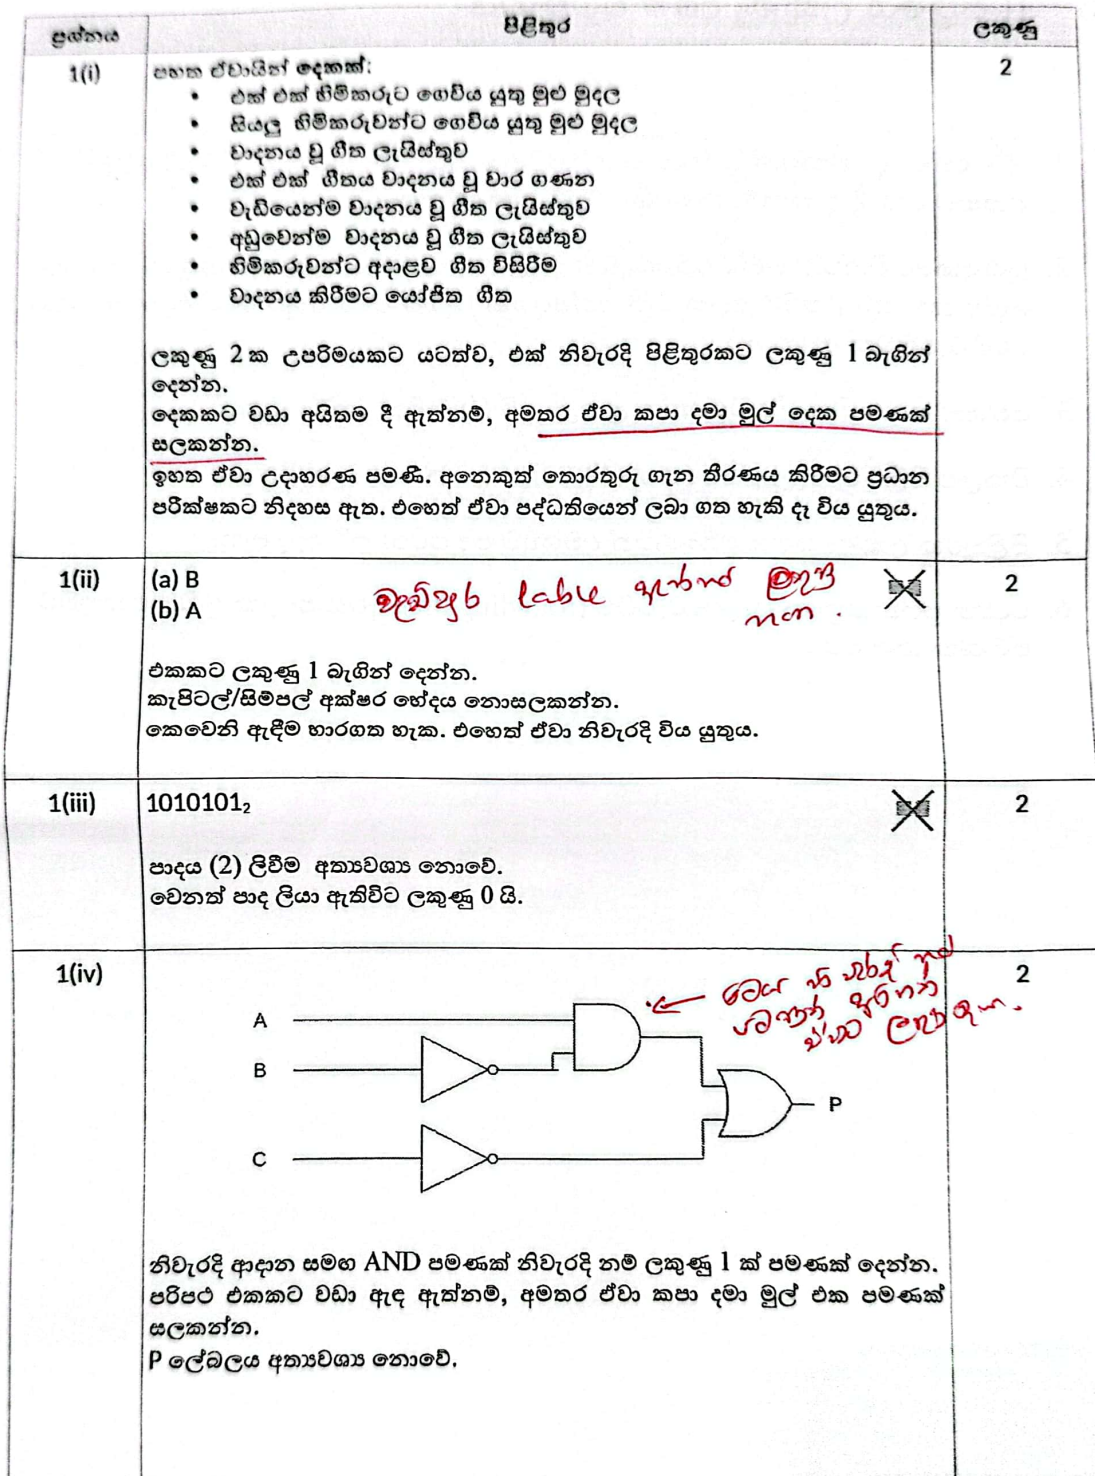 ප්‍රශ්නය පිළිතුර ලකුණු
1(i) පහත ඒවායින් දෙකක්: 2
• එක් එක් හිමිකරුට ගෙවිය යුතු මුළු මුදල
• සියලු හිමිකරුවන්ට ගෙවිය යුතු මුළු මුදල
• වාදනය වූ ගීත ලැයිස්තුව
• එක් එක් ගීතය වාදනය වූ වාර ගණන
• වැඩියෙන්ම වාදනය වූ ගීත ලැයිස්තුව
• අඩුවෙන්ම වාදනය වූ ගීත ලැයිස්තුව
• හිමිකරුවන්ට අදාළව ගීත විසිරීම
• වාදනය කිරීමට යෝජිත ගීත
ලකුණු 2 ක උපරිමයකට යටත්ව, එක් නිවැරදි පිළිතුරකට ලකුණු 1 බැගින්
දෙන්න.
දෙකකට වඩා අයිතම දී ඇත්නම්, අමතර ඒවා කපා දමා මුල් දෙක පමණක්
සලකන්න.
ඉහත ඒවා උදාහරණ පමණි. අනෙකුත් තොරතුරු ගැන තීරණය කිරීමට ප්‍රධාන
පරීක්ෂකට නිදහස ඇත. එහෙත් ඒවා පද්ධතියෙන් ලබා ගත හැකි දෑ විය යුතුය.
1(ii) (a) B 2
(b) A
එකකට ලකුණු 1 බැගින් දෙන්න.
කැපිටල්/සිම්පල් අක්ෂර භේදය නොසලකන්න.
කෙවෙනි ඇඳීම භාරගත හැක. එහෙත් ඒවා නිවැරදි විය යුතුය.
1(iii) 1010101₂ 2
පාදය (2) ලිවීම අත්‍යවශ්‍ය නොවේ.
වෙනත් පාද ලියා ඇතිවිට ලකුණු 0 යි.
1(iv) 2
A
B
P
C
නිවැරදි ආදාන සමඟ AND පමණක් නිවැරදි නම් ලකුණු 1 ක් පමණක් දෙන්න.
පරිපථ එකකට වඩා ඇඳ ඇත්නම්, අමතර ඒවා කපා දමා මුල් එක පමණක්
සලකන්න.
P ලේබලය අත්‍යවශ්‍ය නොවේ.